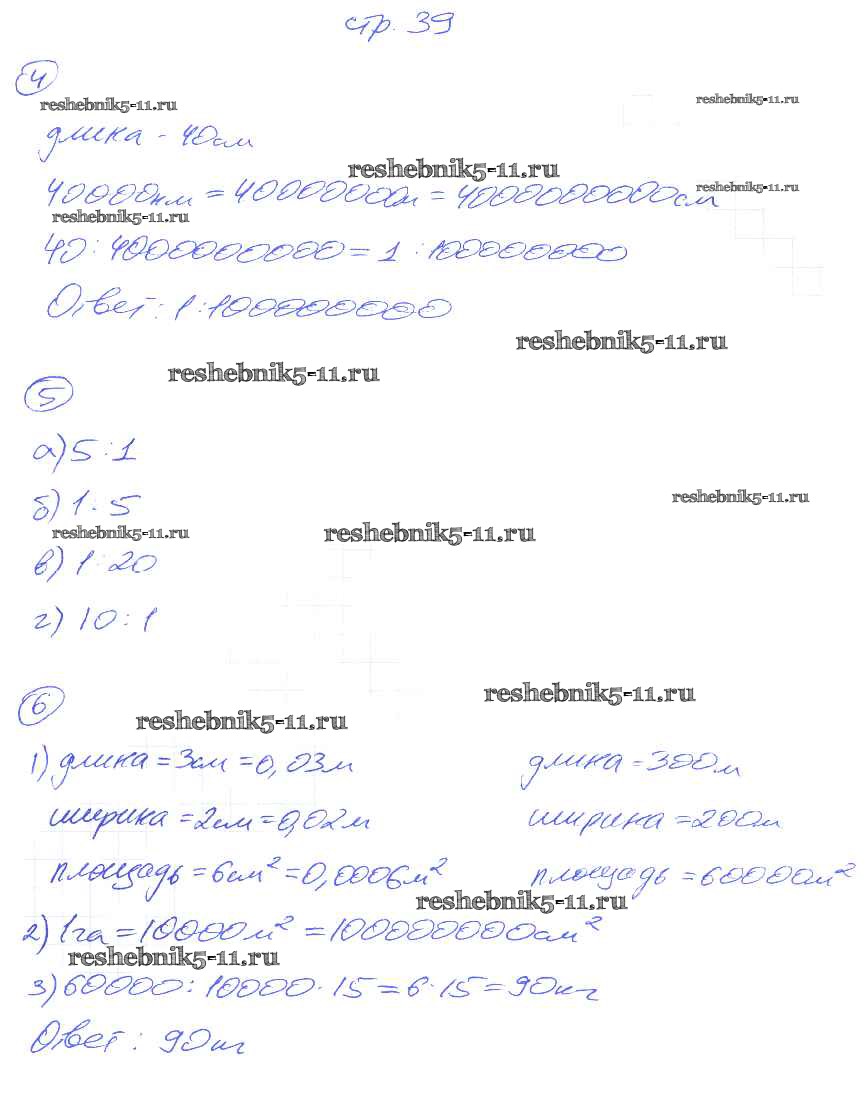 стр. 39
4
reshebnik5-11.ru
reshebnik5-11.ru
длина - 40см
reshebnik5-11.ru
40000км = 40000000м = 4000000000см
reshebnik5-11.ru
reshebnik5-11.ru
40 : 4000000000 = 1 : 100000000
Ответ: 1:100000000
reshebnik5-11.ru
reshebnik5-11.ru
5
а) 5 : 1
б) 1 : 5
reshebnik5-11.ru
reshebnik5-11.ru
reshebnik5-11.ru
в) 1 : 20
г) 10 : 1
6
reshebnik5-11.ru
reshebnik5-11.ru
1) длина = 3см = 0,03м длина = 300м
ширина = 2см = 0,02м ширина = 200м
площадь = 6см² = 0,0006м² площадь = 60000м²
reshebnik5-11.ru
2) 1га = 10000м² = 100000000см²
reshebnik5-11.ru
3) 60000 : 10000 · 15 = 6 · 15 = 90кг
Ответ: 90кг